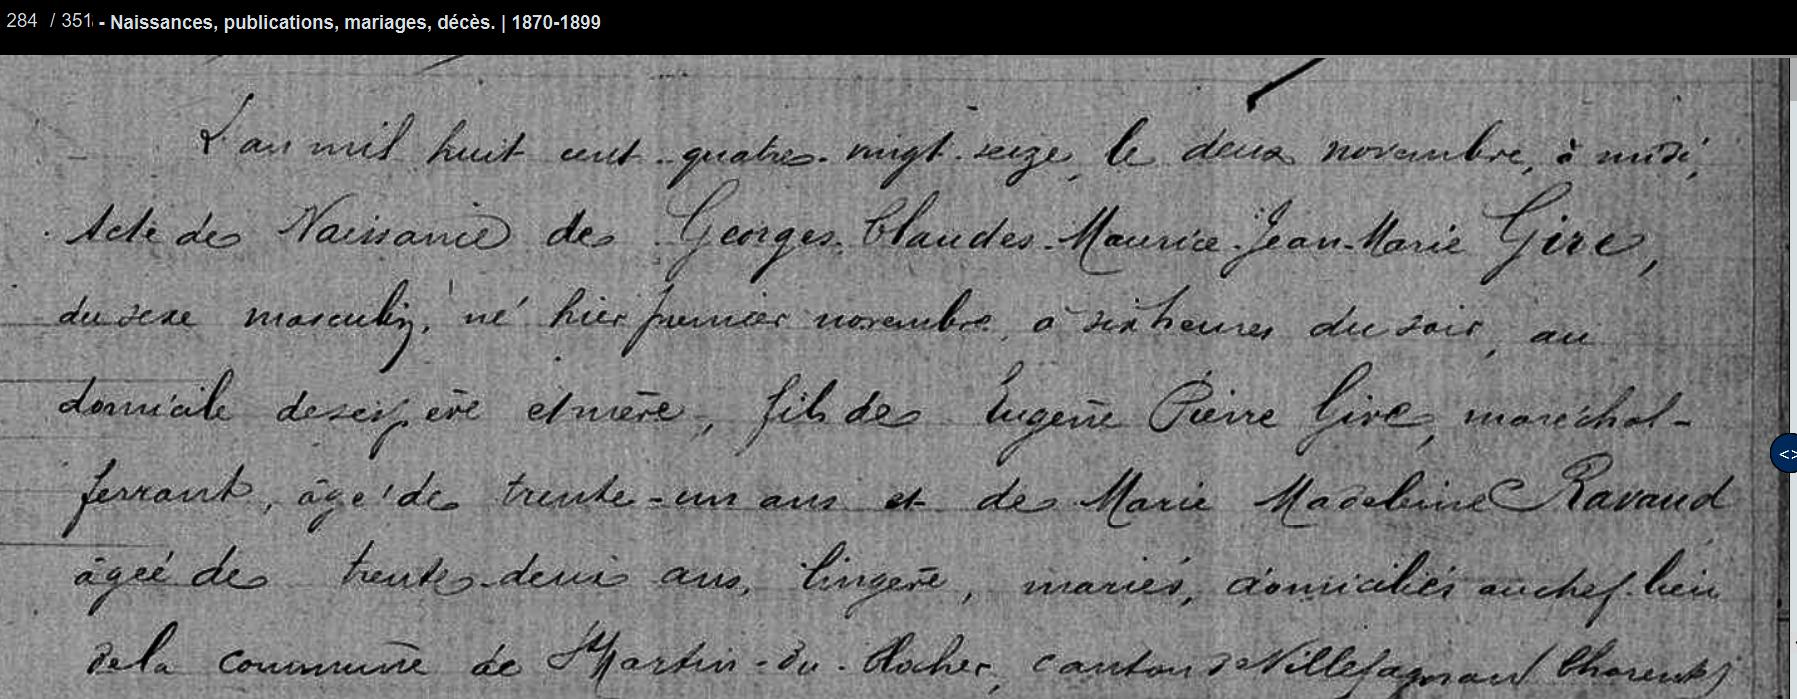 284 / 351 - Naissances, publications, mariages, décès. | 1870-1899
L'an mil huit cent quatre-vingt-seize, le deux novembre, à midi,
Acte de Naissance de Georges-Claude-Maurice-Jean-Marie Gire,
du sexe masculin, né hier premier novembre, à six heures du soir, au
domicile de ses père et mère, fils de Eugène Pierre Gire, maréchal-
ferrant, âgé de trente-un ans et de Marie Madeleine Ravaud
âgée de trente-deux ans, lingère, mariés, domiciliés au chef-lieu
de la commune de St Martin-du-Clocher, canton de Villefagnan (Charente)
<>